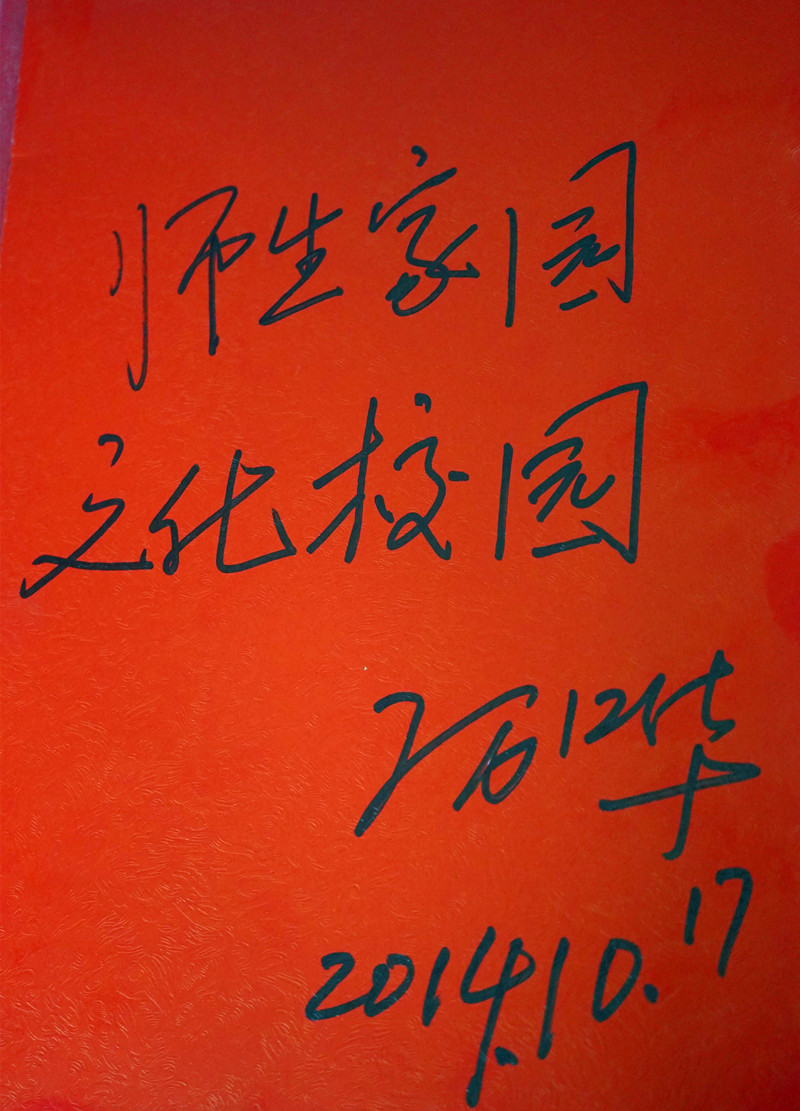 师生家园
文化校园
华
2014.10.17